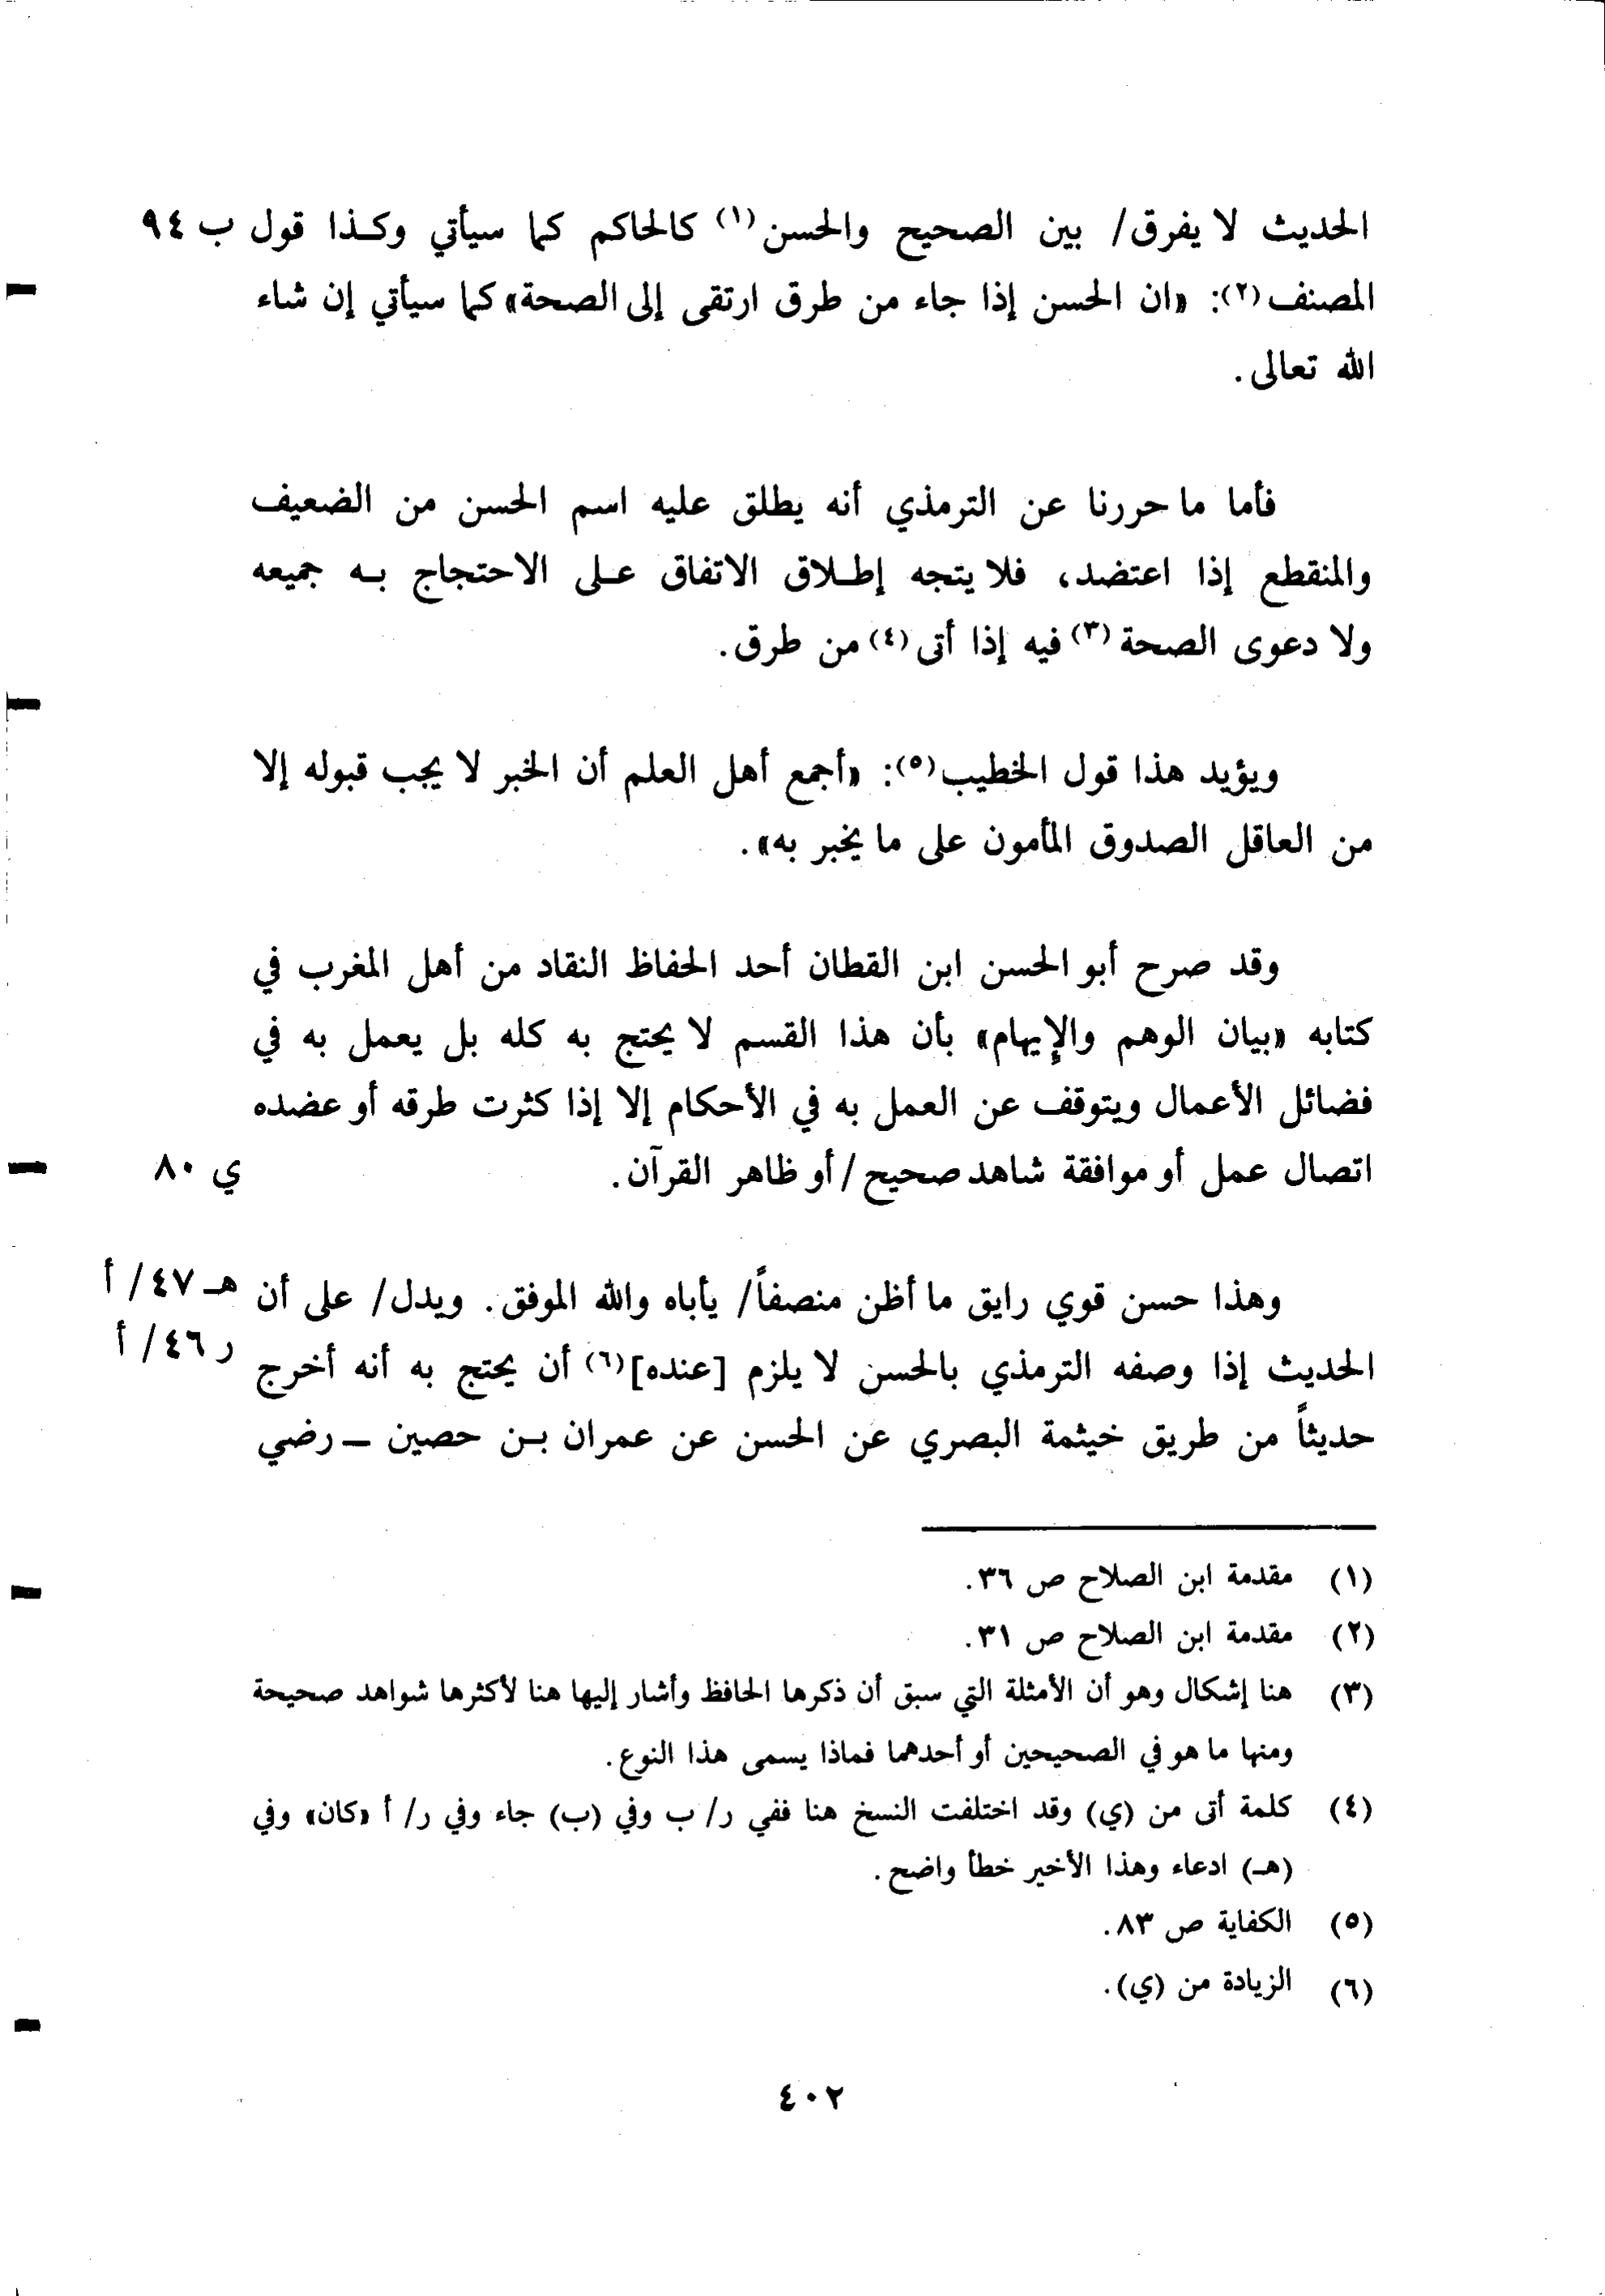 الحديث لا يفرق/ بين الصحيح والحسن(١) كالحاكم كما سيأتي وكذا قول ب ٩٤
المصنف(٢): «ان الحسن إذا جاء من طرق ارتقى إلى الصحة» كما سيأتي إن شاء
الله تعالى.
فأما ما حررنا عن الترمذي أنه يطلق عليه اسم الحسن من الضعيف
والمنقطع إذا اعتضد، فلا يتجه إطلاق الاتفاق على الاحتجاج به جميعه
ولا دعوى الصحة(٣) فيه إذا أتى(٤) من طرق.
ويؤيد هذا قول الخطيب(٥): «أجمع أهل العلم أن الخبر لا يجب قبوله إلا
من العاقل الصدوق المأمون على ما يخبر به».
وقد صرح أبو الحسن ابن القطان أحد الحفاظ النقاد من أهل المغرب في
كتابه «بيان الوهم والإيهام» بأن هذا القسم لا يحتج به كله بل يعمل به في
فضائل الأعمال ويتوقف عن العمل به في الأحكام إلا إذا كثرت طرقه أو عضده
اتصال عمل أو موافقة شاهد صحيح/ أو ظاهر القرآن. ي ٨٠
وهذا حسن قوي رايق ما أظن منصفاً/ يأباه والله الموفق. ويدل/ على أن هـ ٤٧/ أ
الحديث إذا وصفه الترمذي بالحسن لا يلزم [عنده](٦) أن يحتج به أنه أخرج ر ٤٦/ أ
حديثاً من طريق خيثمة البصري عن الحسن عن عمران بن حصين ــ رضي
(١) مقدمة ابن الصلاح ص ٣٦.
(٢) مقدمة ابن الصلاح ص ٣١.
(٣) هنا إشكال وهو أن الأمثلة التي سبق أن ذكرها الحافظ وأشار إليها هنا لأكثرها شواهد صحيحة
ومنها ما هو في الصحيحين أو أحدهما فماذا يسمى هذا النوع.
(٤) كلمة أتى من (ي) وقد اختلفت النسخ هنا ففي ر/ ب وفي (ب) جاء وفي ر/ أ «كان» وفي
(هـ) ادعاء وهذا الأخير خطأ واضح.
(٥) الكفاية ص ٨٣.
(٦) الزيادة من (ي).
٤٠٢